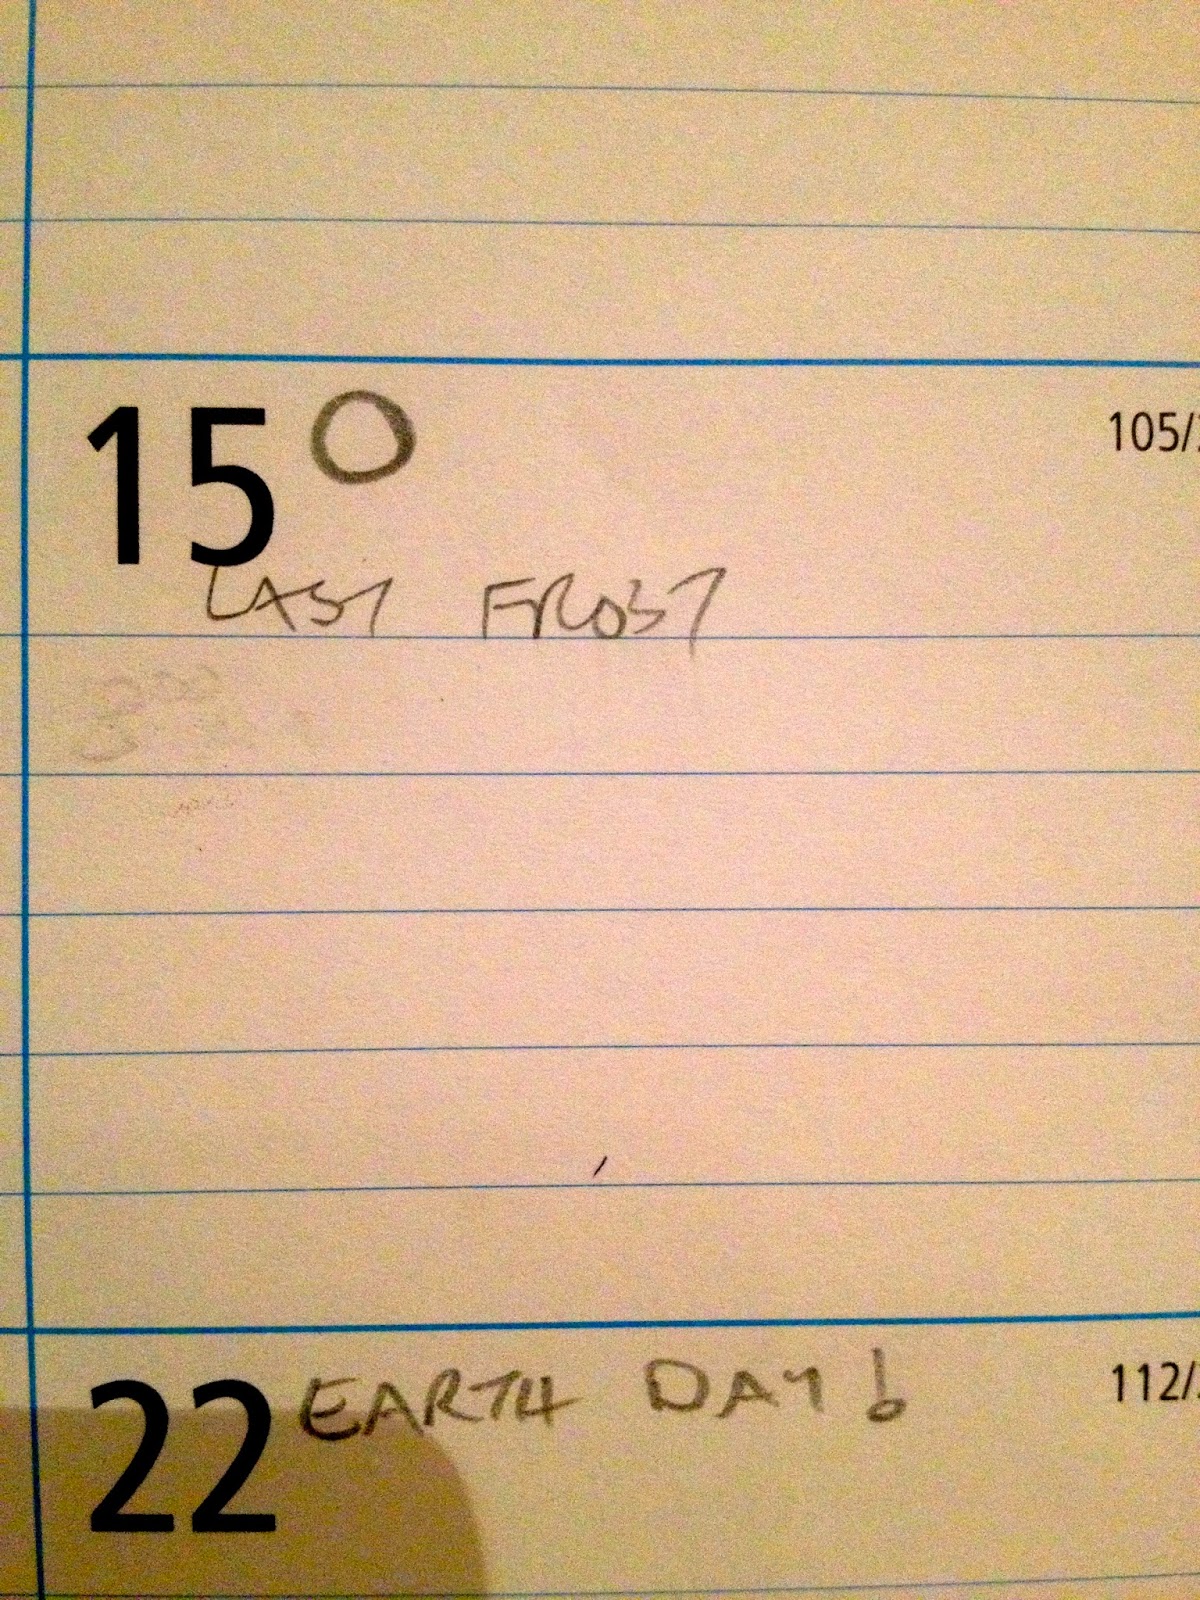 15
105/
LAST FROST
22 EARTH DAY!
112/